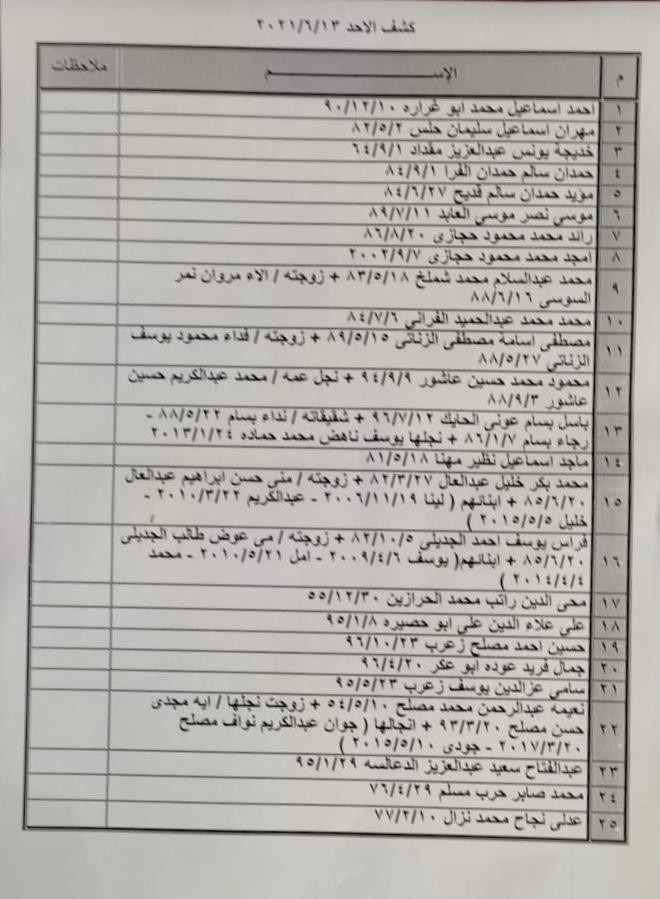 كشف الاحد ٢٠٢١/٦/١٣
م الإســـــــم ملاحظات
١ احمد اسماعيل محمد ابو غراره ٩٠/١٢/١٠
٢ مهران اسماعيل سليمان حلس ٨٢/٥/٢
٣ خديجة يونس عبدالعزيز مقداد ٦٤/٩/١
٤ حمدان سالم حمدان الفرا ٨٤/٩/١
٥ مؤيد حمدان سالم قديح ٨٤/٦/٢٧
٦ موسى نصر موسى العابد ٨٩/٧/١١
٧ رائد محمد محمود حجازى ٨٦/٨/٢٠
٨ امجد محمد محمود حجازى ٢٠٠٢/٩/٧
٩ محمد عبدالسلام محمد شملخ ٨٣/٥/١٨ + زوجته / الاء مروان نمر
السوسى ٨٨/٦/١٦
١٠ محمد محمد عبدالحميد الفرانى ٨٤/٧/٦
١١ مصطفى اسامة مصطفى الزناتى ٨٩/٥/١٥ + زوجته / فداء محمود يوسف
الزناتى ٨٨/٥/٢٧
١٢ محمود محمد حسين عاشور ٩٤/٩/٩ + نجل عمه / محمد عبدالكريم حسين
عاشور ٨٨/٩/٣
١٣ باسل بسام عونى الحايك ٩٦/٧/١٢ + شقيقاته / نداء بسام ٨٨/٥/٢٢ -
رجاء بسام ٨٦/١/٧ + نجلها يوسف ناهض محمد حماده ٢٠١٣/١/٢٤
١٤ ماجد اسماعيل نظير مهنا ٨١/٥/١٨
١٥ محمد بكر خليل عبدالعال ٨٢/٣/٢٧ + زوجته / منى حسن ابراهيم عبدالعال
٨٥/٦/٢٠ + ابنائهم ( لينا ٢٠٠٦/١١/١٩ - عبدالكريم ٢٠١٠/٣/٢٢ -
خليل ٢٠١٥/٥/٥ )
١٦ فراس يوسف احمد الجديلى ٨٢/١٠/٥ + زوجته / مى عوض طالب الجديلى
٨٥/٦/٢٠ + ابنائهم( يوسف ٢٠٠٩/٤/٦ - امل ٢٠١٠/٥/٢١ - محمد
٢٠١٤/٤/٤ )
١٧ محى الدين راتب محمد الحرازين ٥٥/١٢/٣٠
١٨ على علاء الدين على ابو حصيره ٩٥/١/٨
١٩ حسين احمد مصلح زعرب ٩٦/١٠/٢٣
٢٠ جمال فريد عوده ابو عكر ٩٦/٤/٢٠
٢١ سامى عزالدين يوسف زعرب ٩٥/٥/٢٣
٢٢ نعيمه عبدالرحمن محمد مصلح ٥٤/٥/١٠ + زوجت نجلها / ايه مجدى
حسن مصلح ٩٣/٣/٢٠ + انجالها ( جوان عبدالكريم نواف مصلح
٢٠١٧/٣/٢٠ - جودى ٢٠١٥/٥/١٠ )
٢٣ عبدالفتاح سعيد عبدالعزيز الدعالسه ٩٥/١/٢٩
٢٤ محمد صابر حرب مسلم ٧٦/٤/٢٩
٢٥ عدلى نجاح محمد نزال ٧٧/٢/١٠